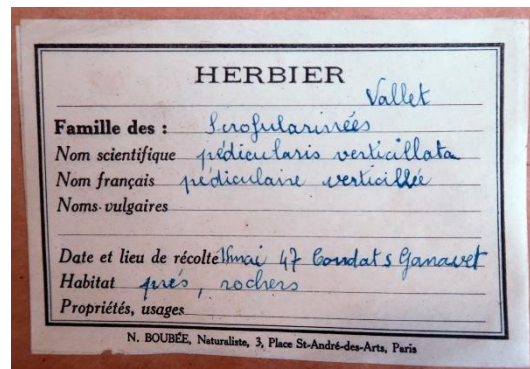 HERBIER
Vallet
Famille des : Scrofularinées
Nom scientifique pédicularis verticillata
Nom français pédiculaire verticillée
Noms vulgaires
Date et lieu de récolte mai 47 Condat s Ganavet
Habitat prés, rochers
Propriétés, usages
N. BOUBÉE, Naturaliste, 3, Place St-André-des-Arts, Paris